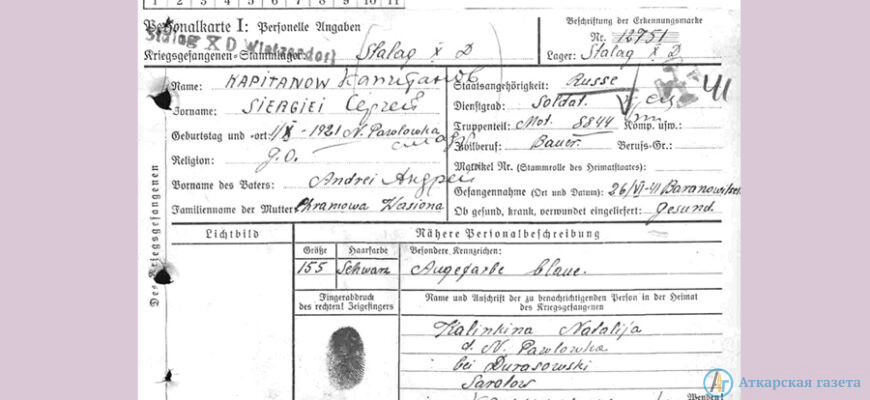 1 2 3 4 5 6 7 8 9 10 11
Personalkarte I: Personelle Angaben
Beschriftung der Erkennungsmarke
Stalag X D Wietzendorf
Nr. 12751
Kriegsgefangenen-Stammlager: Stalag X D
Lager: Stalag X D
Des Kriegsgefangenen
Name: KAPITANOW Капитанов
Staatsangehörigkeit: Russe
41
Vorname: SIERGIEI Сергей
Dienstgrad: Soldat.
Geburtstag und -ort: 1/X - 1921 N. Pawlowka
Truppenteil: Mot. 8844 Komp. usw.:
Zivilberuf: Bauer. Berufs-Gr.:
Religion: g.O.
Matrikel Nr. (Stammrolle des Heimatstaates):
Vorname des Vaters: Andrei Андрей
Gefangennahme (Ort und Datum): 26/VI-41
Familienname der Mutter: Chramowa Wasiona
Ob gesund, krank, verwundet eingeliefert: gesund.
Lichtbild
Nähere Personalbeschreibung
Größe
Haarfarbe
Besondere Kennzeichen:
155
Schwarz
Augefarbe blaue.
Fingerabdruck
des rechten! Zeigefingers
Name und Anschrift der zu benachrichtigenden Person in der Heimat
des Kriegsgefangenen
Kalinkina Natalija
d. N. Pawlowka
bei Durasowski
Saratow
Wenden!
Аткарская газета